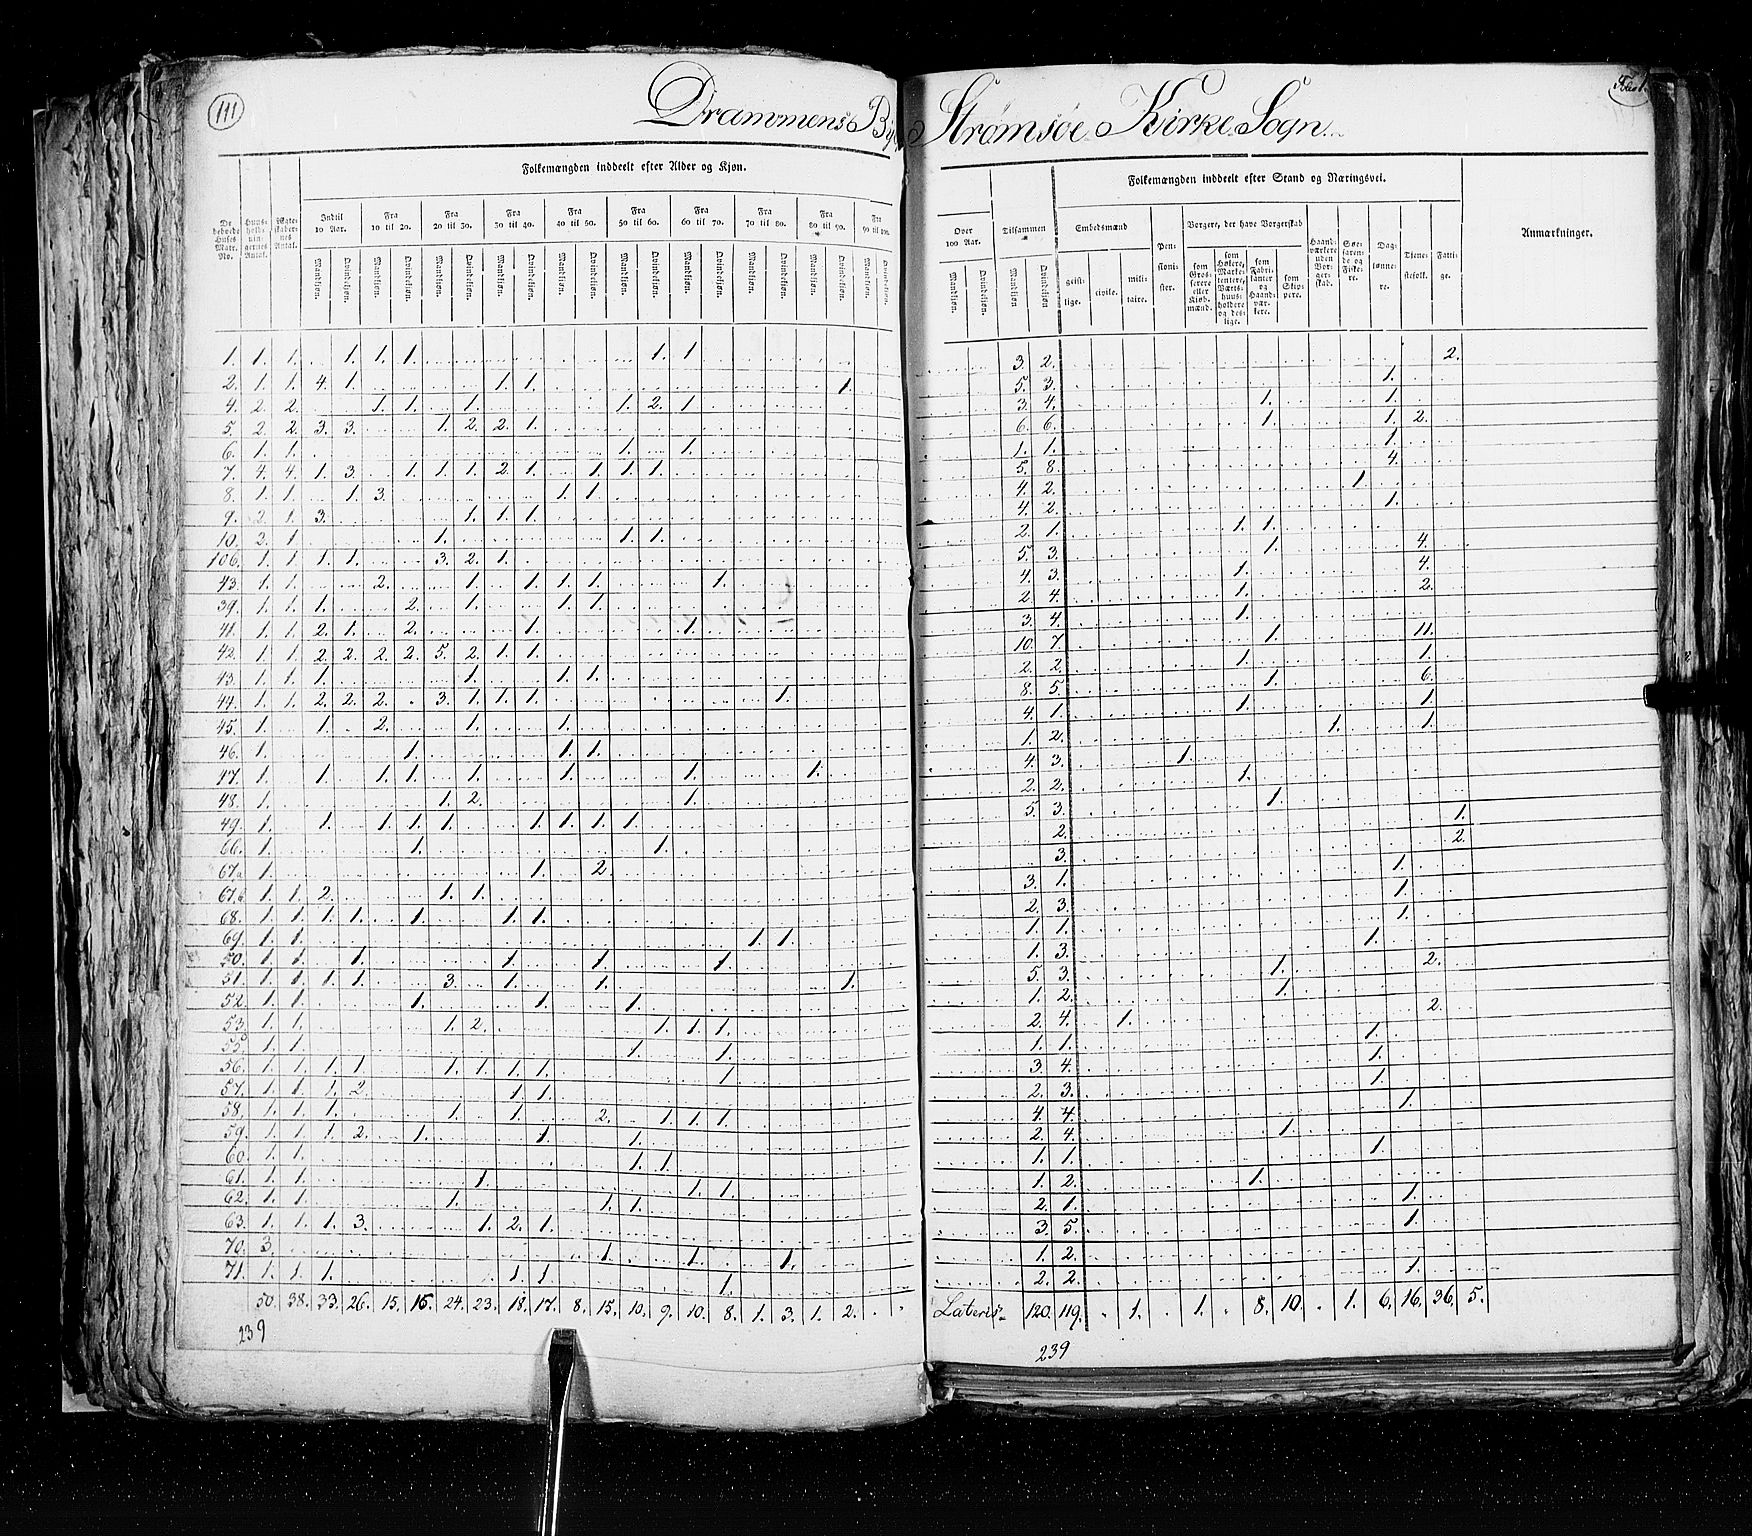 111
Drammens By
Strømsøe Kirke Sogn
De beboede Huses Matr. No.
Huusholdningernes Antal.
Folkemængden inddeelt efter Alder og Kjøn.
Indtil 10 Aar.
Fra 10 til 20.
Fra 20 til 30.
Fra 30 til 40.
Fra 40 til 50.
Fra 50 til 60.
Fra 60 til 70.
Fra 70 til 80.
Fra 80 til 90.
Fra 90 til 100.
Mandkjøn. Qvindekjøn. Mandkjøn. Qvindekjøn. Mandkjøn. Qvindekjøn. Mandkjøn. Qvindekjøn. Mandkjøn. Qvindekjøn. Mandkjøn. Qvindekjøn. Mandkjøn. Qvindekjøn. Mandkjøn. Qvindekjøn. Mandkjøn. Qvindekjøn. Mandkjøn. Qvindekjøn.
Over 100 Aar.
Mandkjøn. Qvindekjøn.
Tilsammen
Mandkjøn Qvindekjøn.
Folkemængden inddeelt efter Stand og Næringsvei.
Embedsmænd
geistlige. civile. militaire.
Pensionister.
Borgere, der have Borgerskab
som Grosserere eller Kjøbmænd.
som Høkere, Marketentere, Værtshuusholdere og deslige.
som Fabrikanter og Haandværkere.
som Skippere.
Haandværkere uden Borgerskab.
Søefarende og Fiskere.
Daglønnere.
Tjenestefolk.
Fattige.
Anmærkninger.
1. 1. 1. 1. 1. 1. 1. 1. 3. 2. 2.
2. 1. 1. 4. 1. 1. 1. 1. 5. 3. 1.
4. 2. 2. 1. 1. 1. 1. 2. 1. 3. 4. 1. 1.
5. 2. 2. 3. 3. 1. 2. 2. 1. 6. 6. 1. 1. 2.
6. 1. 1. 1. 1. 1. 1. 1.
7. 4. 4. 1. 3. 1. 1. 1. 2. 1. 1. 1. 1. 5. 8. 4.
8. 1. 1. 1. 3. 1. 1. 4. 2. 1
9. 2. 1. 3. 1. 1. 1. 4. 2. 1.
10. 2. 1. 1. 1. 1. 2. 1. 1. 1.
106. 1. 1. 1. 1. 3. 2. 1. 5. 3. 1. 4.
43. 1. 1. 2. 1. 1. 1. 1. 1. 4. 3. 1. 4.
39. 1. 1. 1. 2. 1. 1. 1. 2. 4. 1. 2.
41. 1. 1. 2. 1. 2. 1. 1. 3. 4. 1.
42. 1. 1. 2. 2. 2. 2. 5. 2. 1. 1. 10. 7. 1. 11.
43. 1. 1. 1. 1. 1. 1. 2. 2. 1. 1.
44. 1. 1. 2. 2. 2. 3. 1. 1. 1. 1. 8. 5. 1. 6.
45. 1. 1. 2. 1. 1. 4. 1. 1. 1.
46. 1. 1. 1. 1. 1. 2. 1. 1.
47. 1. 1. 1. 1. 1. 1. 1. 1. 4. 3. 1.
48. 1. 1. 2. 1. 2. 2. 1.
49. 1. 1. 1. 1. 1. 1. 1. 1. 1. 5. 3. 1.
66. 1. 1. 1. 2. 1.
67a 1. 1. 2 3. 2.
67b 1. 1. 2. 1. 1. 3. 1. 1.
68. 1. 1. 1. 1. 1. 1. 1. 2. 3. 1.
69. 1. 1. 1. 1. 1. 1. 1.
50. 1. 1. 1. 1. 1. 1. 1. 3. 1.
51. 1. 1. 1. 1. 3. 1. 1. 1. 5. 3. 1. 2.
52. 1. 1. 1. 1. 1. 1. 2. 1.
53. 1. 1. 1. 2. 1. 1. 1. 2. 4. 1. 2.
55. 1. 1. 1. 1. 1. 1. 1.
56. 1. 1. 1. 1. 1. 1. 1. 1. 1. 3 4. 1.
57. 1. 1. 1. 2. 1. 1. 2. 3. 1.
58. 1. 1. 1. 1. 1. 2. 1. 1. 1. 4. 4. 1.
59. 1. 1. 1. 2. 1. 1. 1. 2. 4. 1.
60. 1. 1. 1. 1. 1. 1. 1.
61. 1. 1. 1. 1. 1. 1. 2. 1.
62. 1. 1. 1. 1. 1. 2. 1. 1.
63. 1. 1. 1. 3. 1. 2. 1. 3. 5. 1.
70. 3. 1. 1. 1. 1. 2.
71. 1. 1. 1. 1. 1. 1. 2. 2. 1.
50. 38. 33. 26. 15. 16. 24. 23. 18. 17. 8. 15. 10. 9. 10. 8. 1. 3. 1. 2. Lateris 120. 119. 1. 1. 8. 10. 1. 6. 16. 36. 5.
239
239